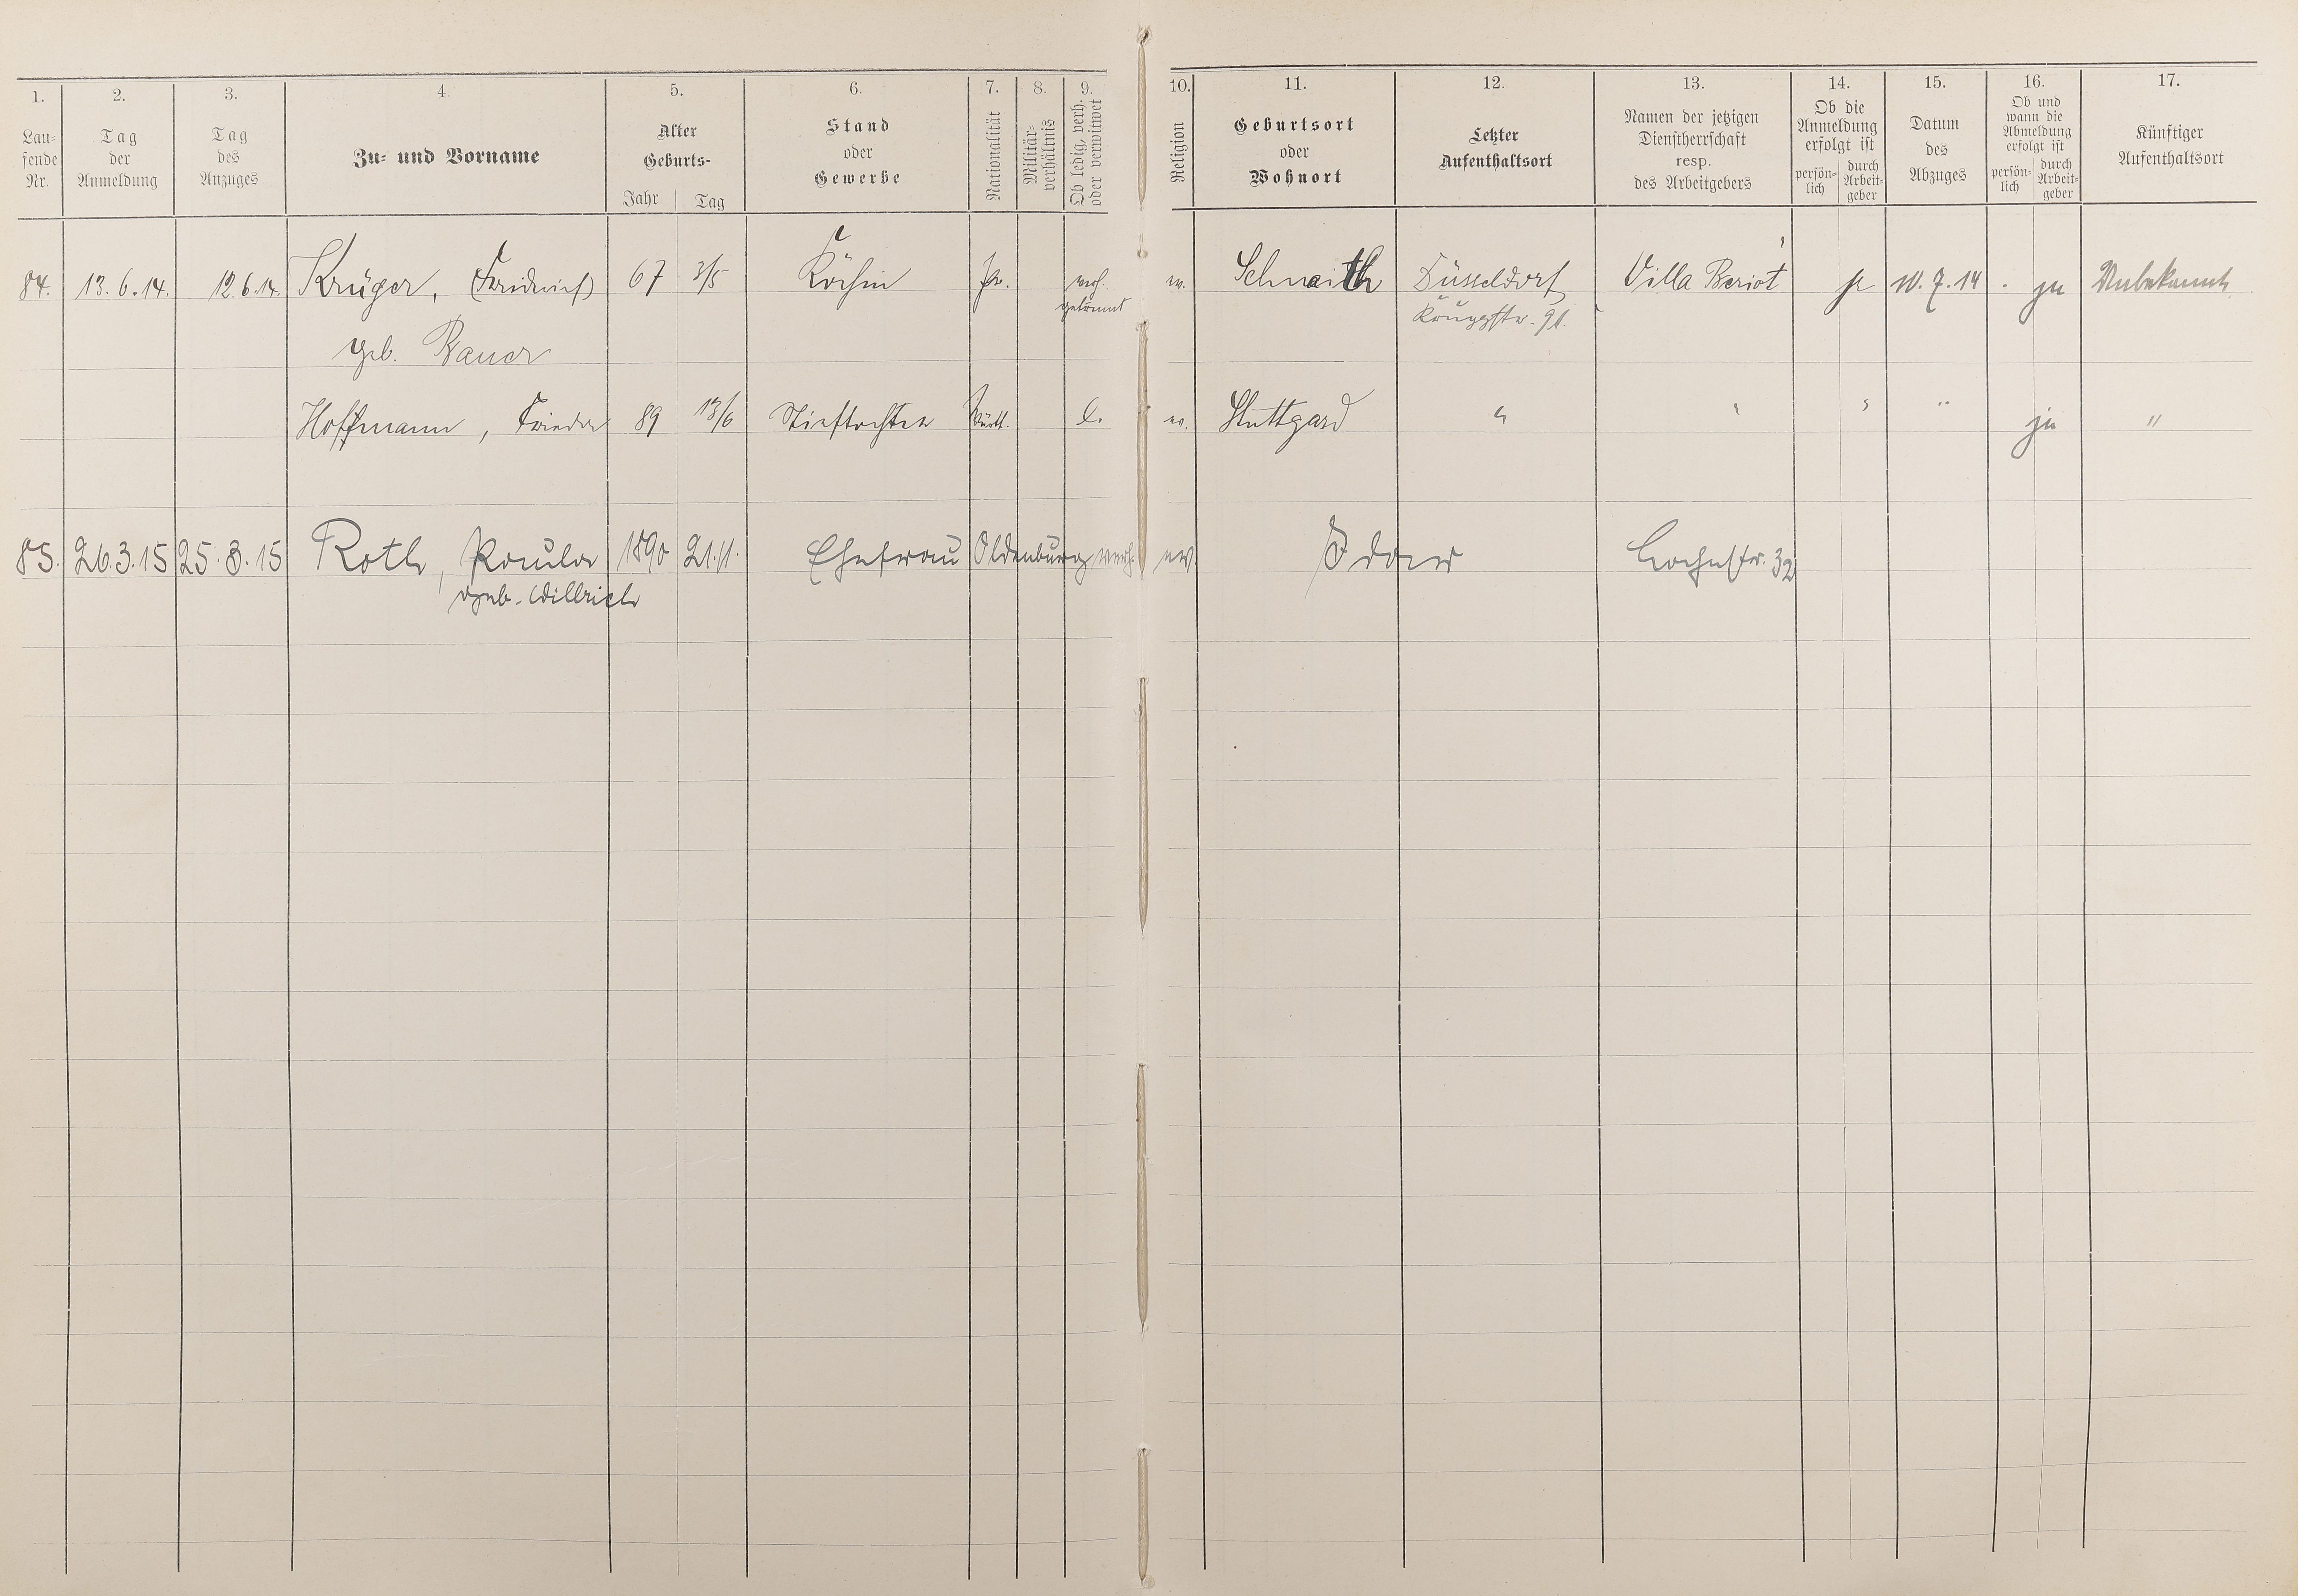 1. 2. 3. 4. 5. 6. 7. 8. 9. 10. 11. 12. 13. 14. 15. 16. 17.
Laufende Nr.
Tag der Anmeldung
Tag des Anzuges
Zu- und Vorname
Alter
Geburts-
Jahr Tag
Stand oder Gewerbe
Nationalität
Militär-verhältnis
Ob ledig, verh. oder verwitwet
Religion
Geburtsort oder Wohnort
Letzter Aufenthaltsort
Namen der jetzigen Dienstherrschaft resp. des Arbeitgebers
Ob die Anmeldung erfolgt ist
persön-lich durch Arbeit-geber
Datum des Abzuges
Ob und wann die Abmeldung erfolgt ist
persön-lich durch Arbeit-geber
Künftiger Aufenthaltsort
84. 13.6.14. 12.6.14. Krüger, 67 3/5 Köchin Pr. ev. Schnaith Düsseldorf Villa Beriot ja 10.7.14 ja Unbekannt
getrennt 91.
geb. Bauer
Hoffmann, Frieda 89 13/6 Stieftochter Württ. l. ev. Stuttgard " " " " ja "
85. 26.3.15 25.3.15 Roth, Paula 1890 21.11. Ehefrau Oldenburg verh. ev. Idar 32
geb. Willrich